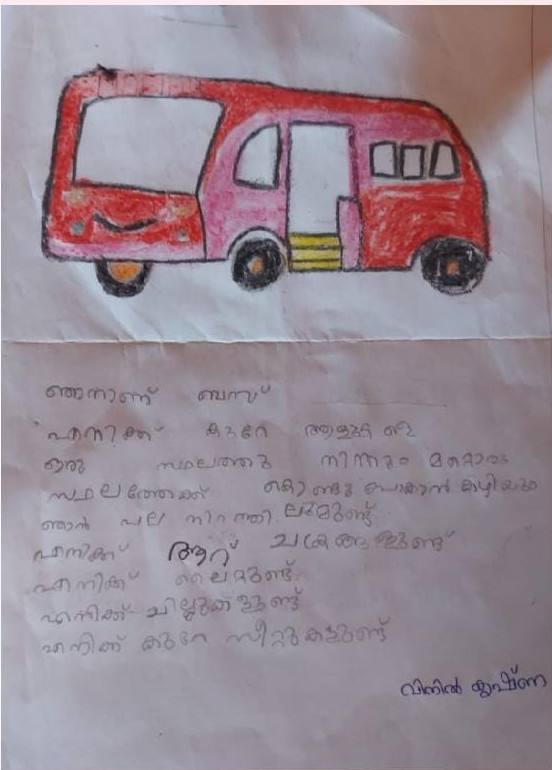 ഞനാണ് ബസ്
എനിക്ക് കുറേ ആളുകളെ
ഒരു സ്ഥലത്തു നിന്നും മറ്റൊരു
സ്ഥലത്തേക്ക് കൊണ്ടുപോകാൻ കഴിയും
ഞാൻ പല നിറത്തിലുമുണ്ട്
എനിക്ക് ആറ് ചക്രങ്ങളുണ്ട്
എനിക്ക് ലൈറ്റുണ്ട്
എനിക്ക് ചില്ലുകളുണ്ട്
എനിക്ക് കുറേ സീറ്റുകളുണ്ട്
വിനിൽ കൃഷ്ണ